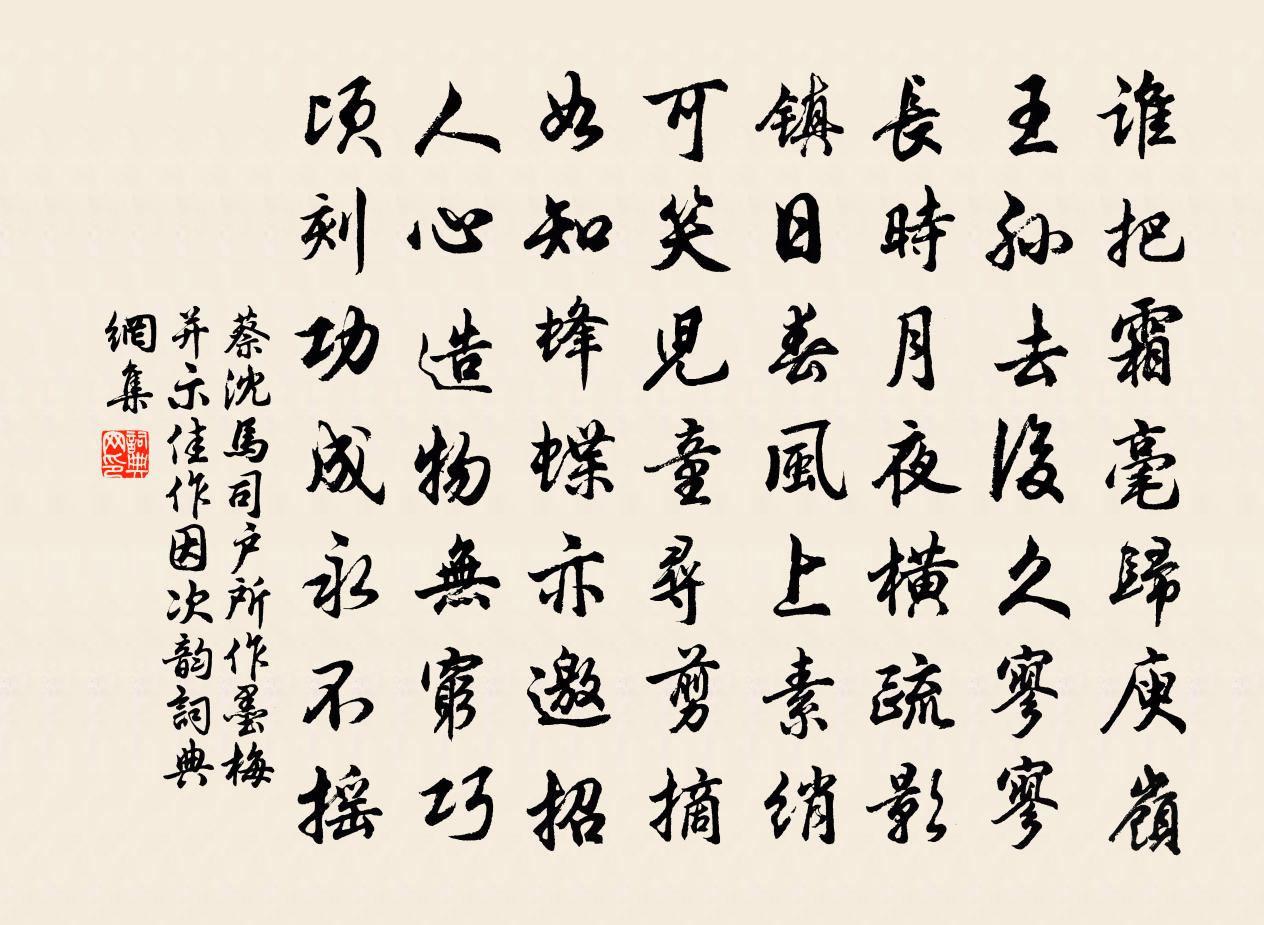 誰把霜毫歸庾嶺
王孫去後久寥寥
長時月夜橫疏影
鎮日春風上素綃
可笑兒童尋剪摘
如知蜂蝶亦邀招
人心造物無窮巧
頃刻功成永不搖
蔡沈馬司户所作墨梅
并示佳作因次韵詞典
網集
詞典網印